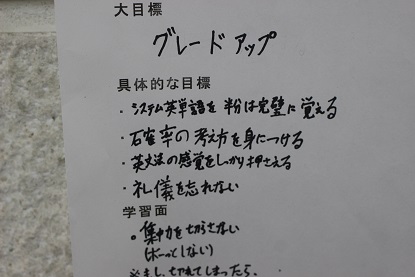 大目標
グレードアップ
具体的な目標
・システム英単語を 粉は完璧に覚える
・石雀率の考え方を身につける
・英文法の感覚をしっかり押さえる
・礼儀を忘れない
学習面
・集中力を切らさない
(ボーっとしない)
※もし、切れてしまったら、